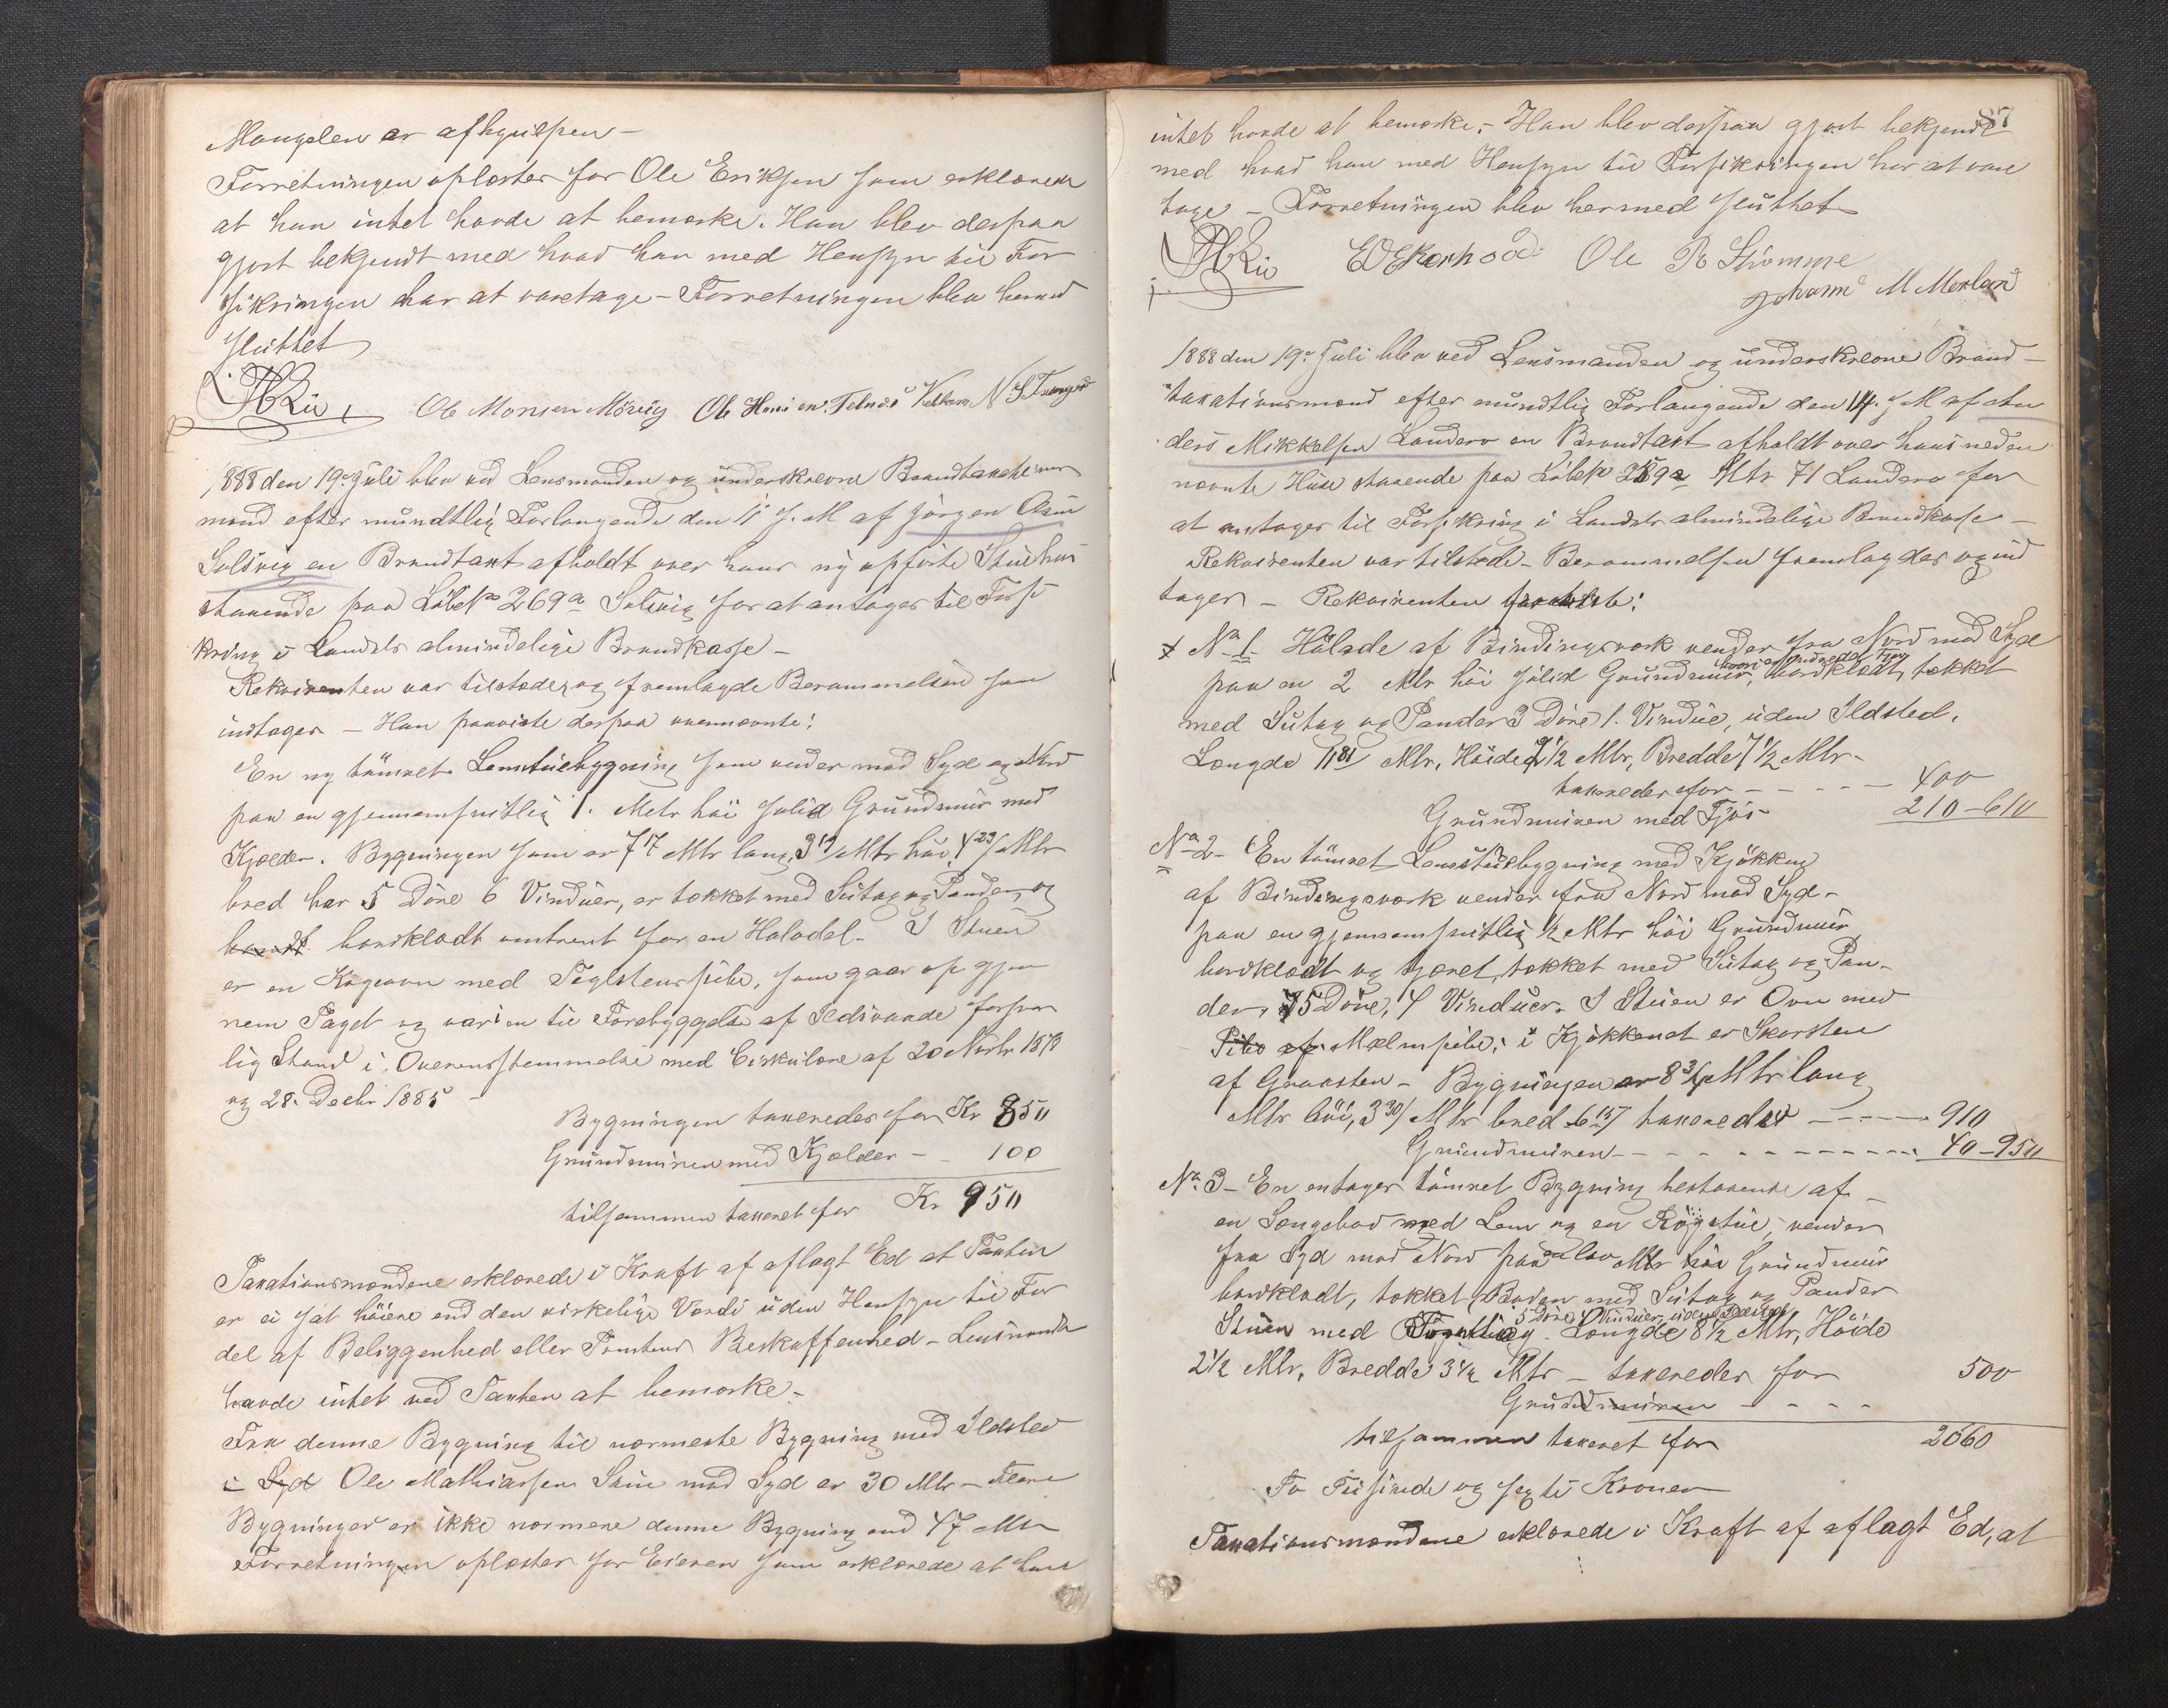 Mangelen er afhjulpen –
Forretningen oplæstes for Ole Eriksen som erklærede
at han intet havde at bemærke. Han blev derpaa
gjort bekjendt med hvad han med Hensyn til For
sikringen har at varetage – Forretningen blev hermed
sluttet
Ole Monsen Ole Hansen N S
1888 den 19de Juli blev ved Lensmanden og underskrevne Brandtaxations
mænd efter mundtlig Forlangende den 11 d. M. af Jørgen
Solsvig en Brandtaxt afholdt over hans ny opførte Stuehus
staaende paa Løbe No 269a Solsvig for at antages til Forsi
kring i Landets almindelige Brandkasse –
Rekvirenten var tilstede og fremlagde Berammelsen som
indtages – Han paaviste derpaa overnævnte:
En ny tømret Lemstuebygning som vender mod Syd og Nord
paa en gjennemsnitlig 1. Metr høi solid Grundmur med
Kjælder. Bygningen som er 7 17 Mtr lang, 3 Mtr høi, 4 23/ Mtr
bred har 5 Døre 6 Vinduer, er tækket med Sutag og Pander, og
bordklædt omtrent for en Halvdel. I Stuen
er en Kogeovn med Teglstenspibe, som gaar op gjen
nem Taget og var i en til Forebyggelse af Ildsvaade forsvar
lig Stand i Overensstemmelse med Cirkulære af 20 Novbr 1878
og 28. Decbr 1885 –
Bygningen taxeredes for Kr 850
Grundmuren med Kjælder – – 100
tilsammen taxeret for Kr 950
Taxationsmændene erklærede i Kraft af aflagt Ed at Taxten
er ei sat høiere end den virkelige Værdi uden Hensyn til For
del af Beliggenhed eller Tomtens Beskaffenhed – Lensmanden
havde intet ved Taxten at bemærke –
Fra denne Bygning til nærmeste Bygning med Ildsted
i Syd Ole Mathiassen mod Syd er 30 Mtr – Flere
Bygninger er ikke nærmere denne Bygning end 47 Mtr
Forretningen oplæstes for Eieren som erklærede at han
87
intet havde at bemærke. – Han blev derpaa gjort bekjendt
med hvad han med Hensyn til Forsikringen har at vare
tage – Forretningen blev hermed sluttet
E Ekerhovd Ole R Strømme
Johann M Morland
1888 den 19de Juli blev ved Lensmanden og underskrevne Brand –
taxationsmænd efter mundtlig Forlangende den 14. d M af An
ders Mikkelsen Landero en Brandtaxt afholdt over hans neden
nævnte Huse staaende paa Løbe No 259a Mtr 71 Landero for
at antages til Forsikring i Landets almindelige Brandkasse –
Rekvirenten var tilstede – Berammelsen fremlagdes og ind
tages – Rekvirenten paaviste:
No 1 Hølade af Bindingsværk vender fra Nord mod Syd
hvori er indredd Fjøs
paa en 2 Mtr høi solid Grundmur, bordklædt, tækket
med Sutag og Pander 3 Døre 1. Vindue, uden Ildsted.
Længde 11 81/ Mtr, Høide 2 1/2 Mtr, Bredde 7 1/2 Mtr –
taxeredes for – – – – – 400
Grundmuren med Fjøs 210 – 610
No 2 – En tømret Lemstuebygning med Kjøkken
af Bindingsværk vender fra Nord mod Syd –
paa en gjennemsnitlig 1/2 Mtr høi Grundmur
bordklædt og tjæret, tækket med Sutag og Pan-
der, 5 Døre, 4 Vinduer. I Stuen er Ovn med
Pibe af Malmpibe; i Kjøkkenet er Skorsten
af Graasten – Bygningen er 8 3/4 Mtr lang
Mtr høi, 3 30/ Mtr bred 6 15/ taxeredes – – – – 910
Grundmuren – – – – – – – – – – 40 – 950
No 3 – En entages tømret Bygning bestaaende af –
en Sængebod med Lem og en Røgstue, vender
fra Syd mod Nord paa en lav Mtr høi Grundmur
bordklædt, tækket, Boden med Sutag og Pander
5 Døre, Vinduer, uden Ildsted
Stuen med Torvtag. Længde 8 1/2 Mtr, Høide
2 1/2 Mtr, Bredde 3 1/2 Mtr – taxeredes for 500
Grundmuren – – – –
tilsammen taxeret for 2060
To Tusinde og sexti Kroner
Taxationsmændene erklærede i Kraft af aflagt Ed, at